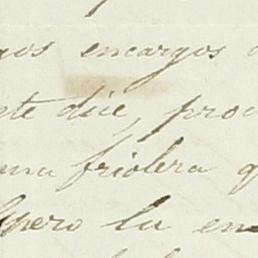 gos encargos
nte dije, proc
una friolera q
Espero la en